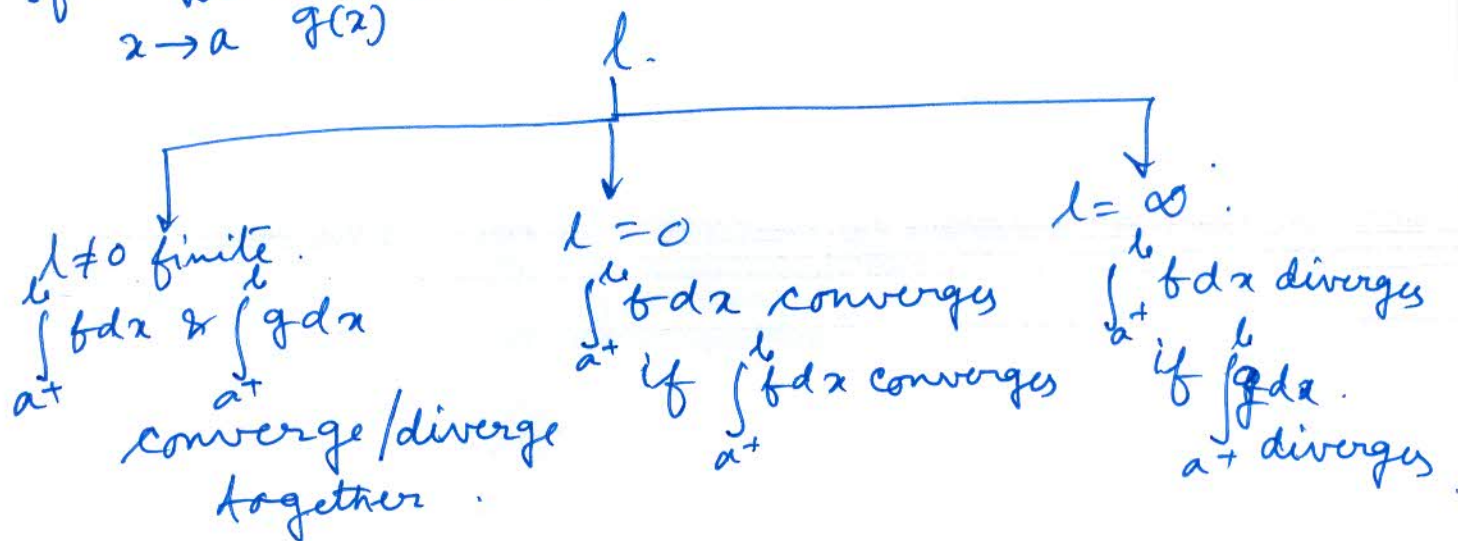 x→a g(x)
l.
l≠0 finite.
∫_{a+}^{b} f dx & ∫_{a+}^{b} g dx
converge/diverge
together.
l = 0
∫_{a+}^{b} f dx converges
if ∫_{a+}^{b} f dx converges
l = ∞.
∫_{a+}^{b} f dx diverges
if ∫_{a+}^{b} g dx.
diverges